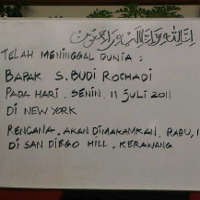 إنا لله وإنا إليه راجعون
TELAH MENINGGAL DUNIA :
BAPAK S. BUDI ROCHADI
PADA HARI . SENIN, 11 JULI 2011
DI NEW YORK
RENCANA . AKAN DIMAKAMKAN . RABU, 1
DI SAN DIEGO HILL . KERAWANG